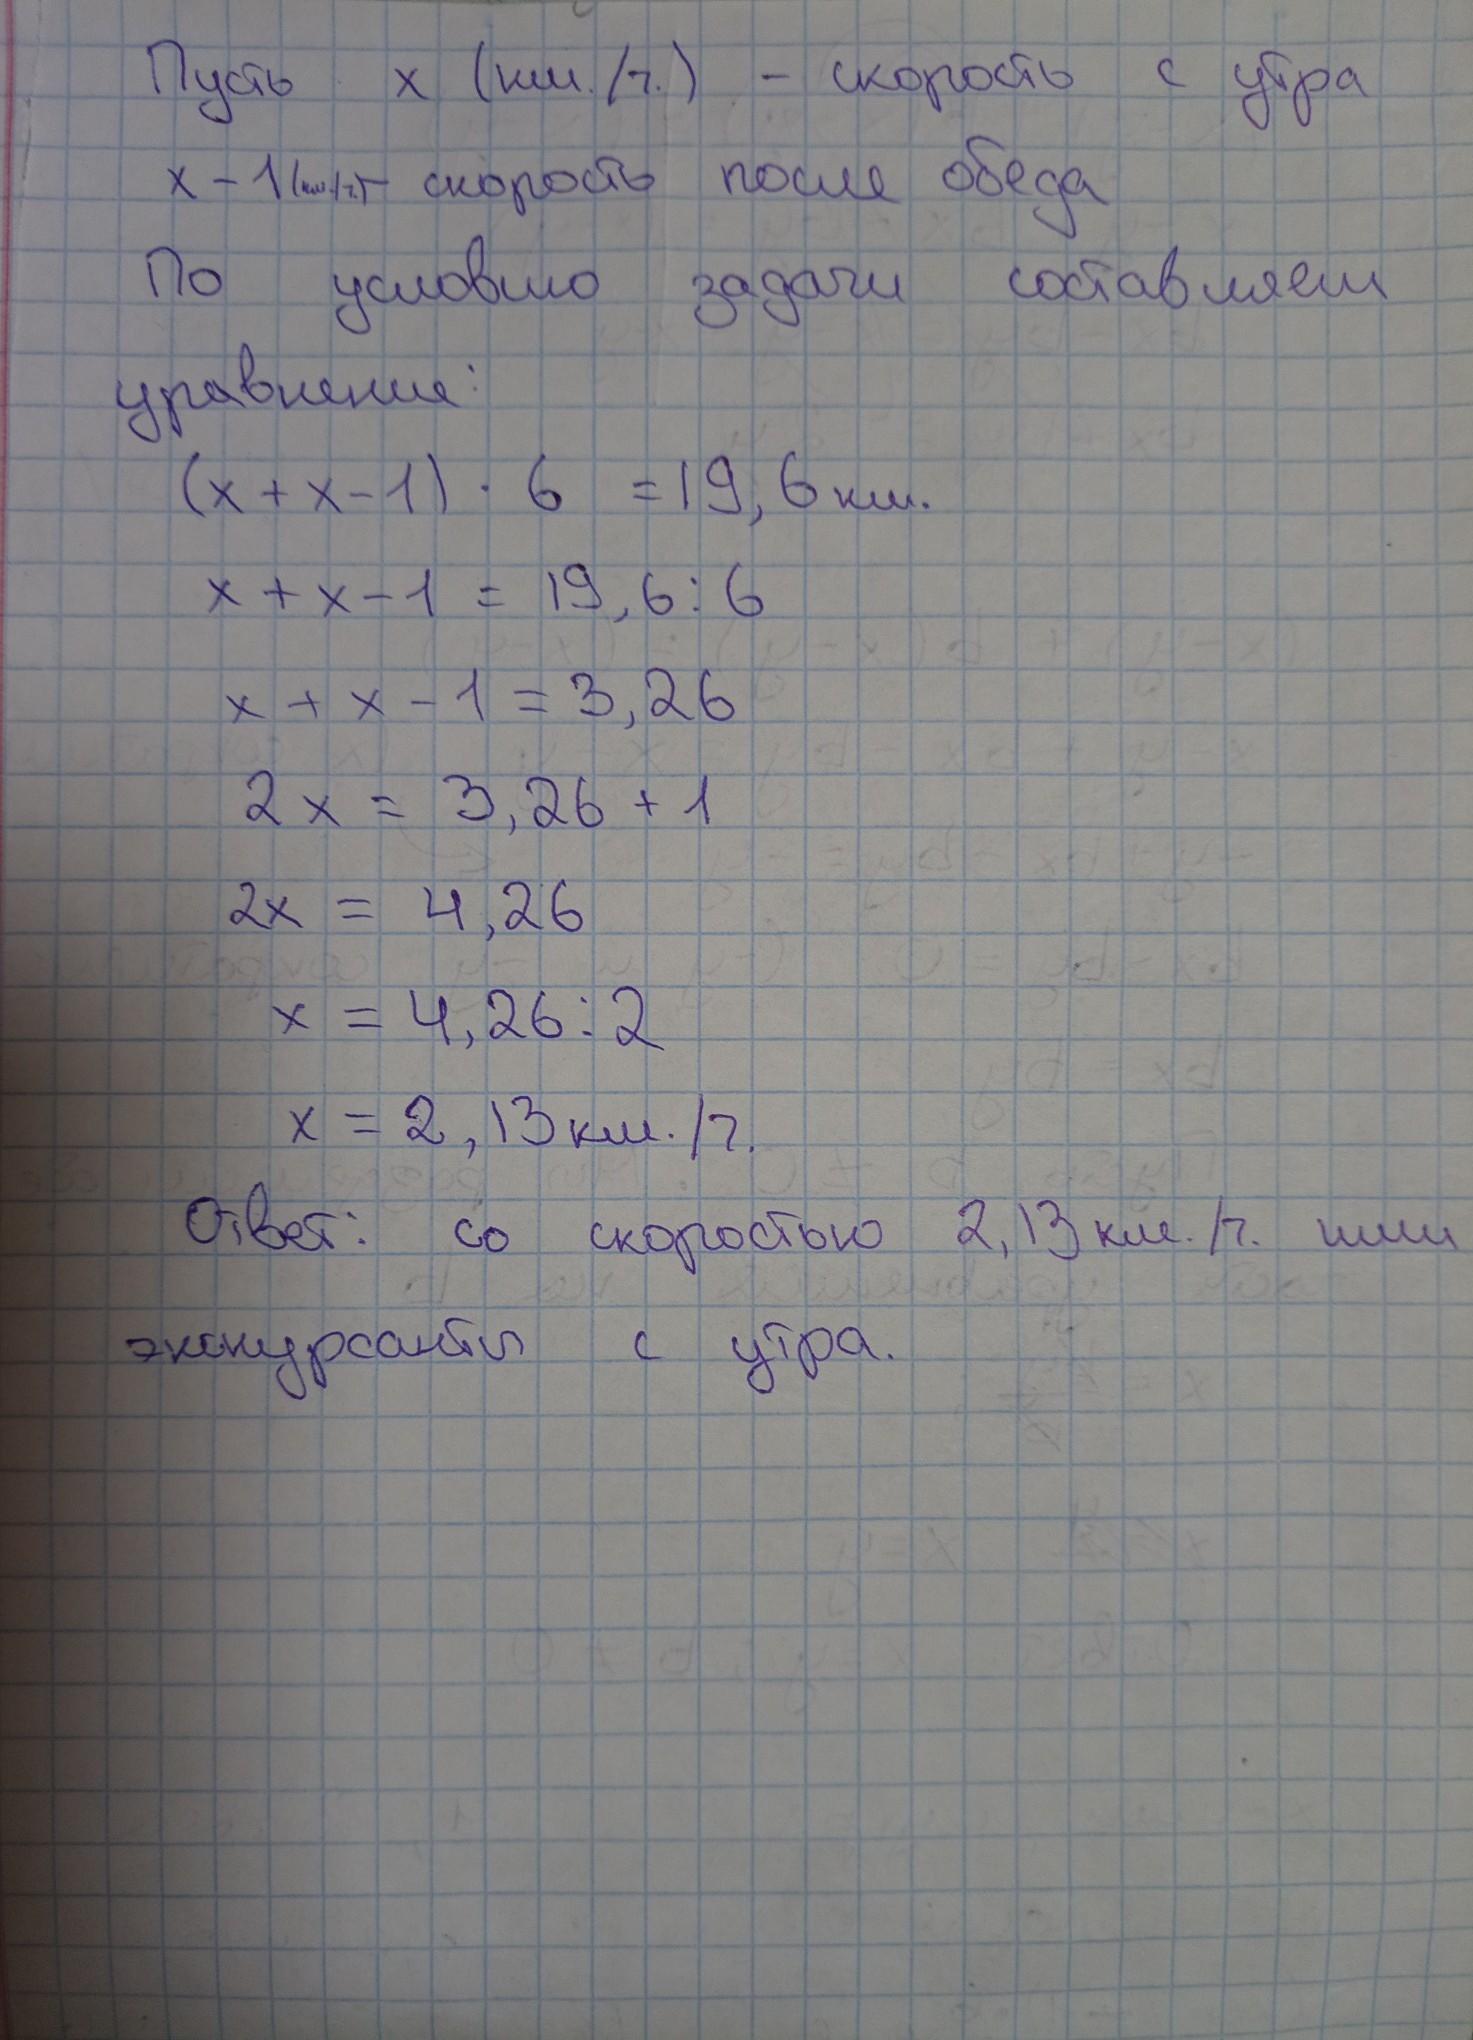 Пусть х (км./ч.) - скорость с утра
х - 1 (км/ч) - скорость после обеда
По условию задачи составляем
уравнение:
(х + х - 1) · 6 = 19,6 км.
х + х - 1 = 19,6 : 6
х + х - 1 = 3,26
2х = 3,26 + 1
2х = 4,26
х = 4,26 : 2
х = 2,13 км./ч.
Ответ: со скоростью 2,13 км./ч. шли
экскурсанты с утра.